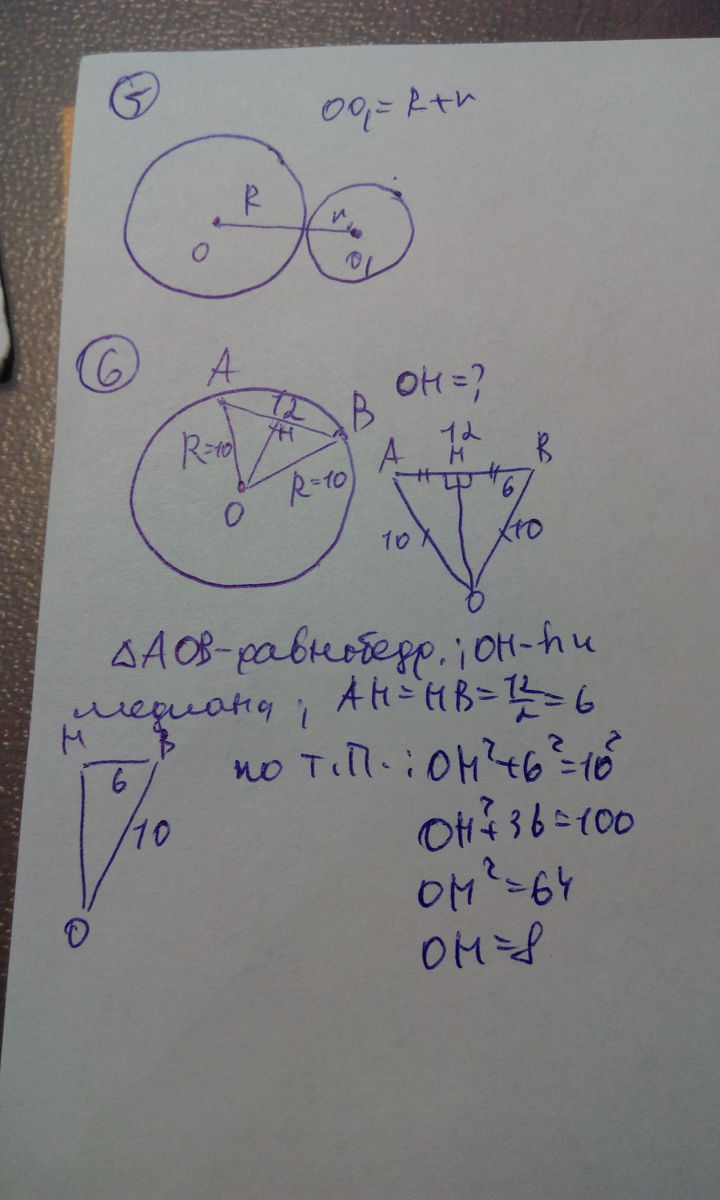 5
OO₁ = R+r
R
r
O
O₁
6
A
12
B
H
R=10
R=10
O
OH = ?
12
A H B
6
10
10
O
△AOB-равнобедр.; OH-h и
медиана; AH=HB=12/2=6
H B
6
10
O
по т.П.: OH²+6²=10²
OH²+36=100
OH²=64
OH=8